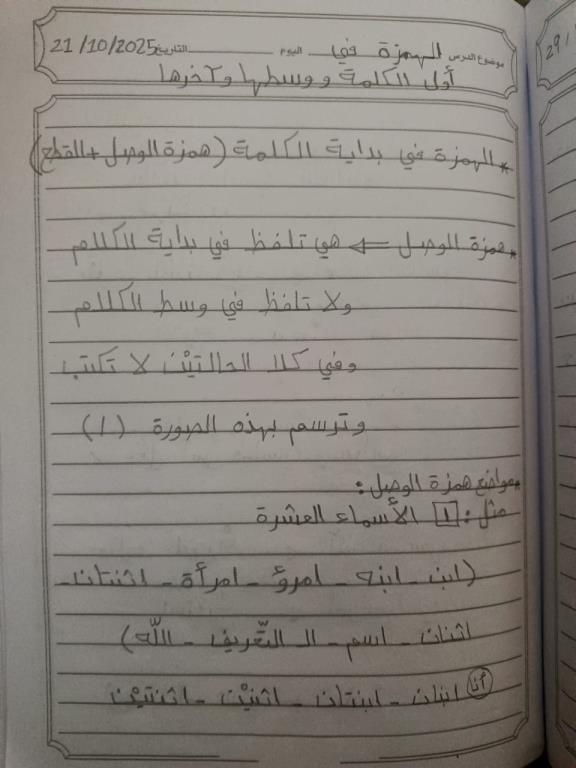 موضوع الدرس الهمزة في اليوم التاريخ 21/10/2025
أول الكلمة ووسطها وآخرها
* الهمزة في بداية الكلمة (همزة الوصل + القطع)
* همزة الوصل ⇐ هي تلفظ في بداية الكلام
ولا تلفظ في وسط الكلام
وفي كلا الحالتيْن لا تكتب
وترسم بهذه الصورة (ا)
* مواضع همزة الوصل:
مثل: 1 الأسماء العشرة
(ابن - ابنه - امرؤ - امرأة - اثنتان -
اثنان - اسم - الـ التّعريف - اللّه)
ابنان - ابنتان - اثنيْن - اثنتيْن
29/